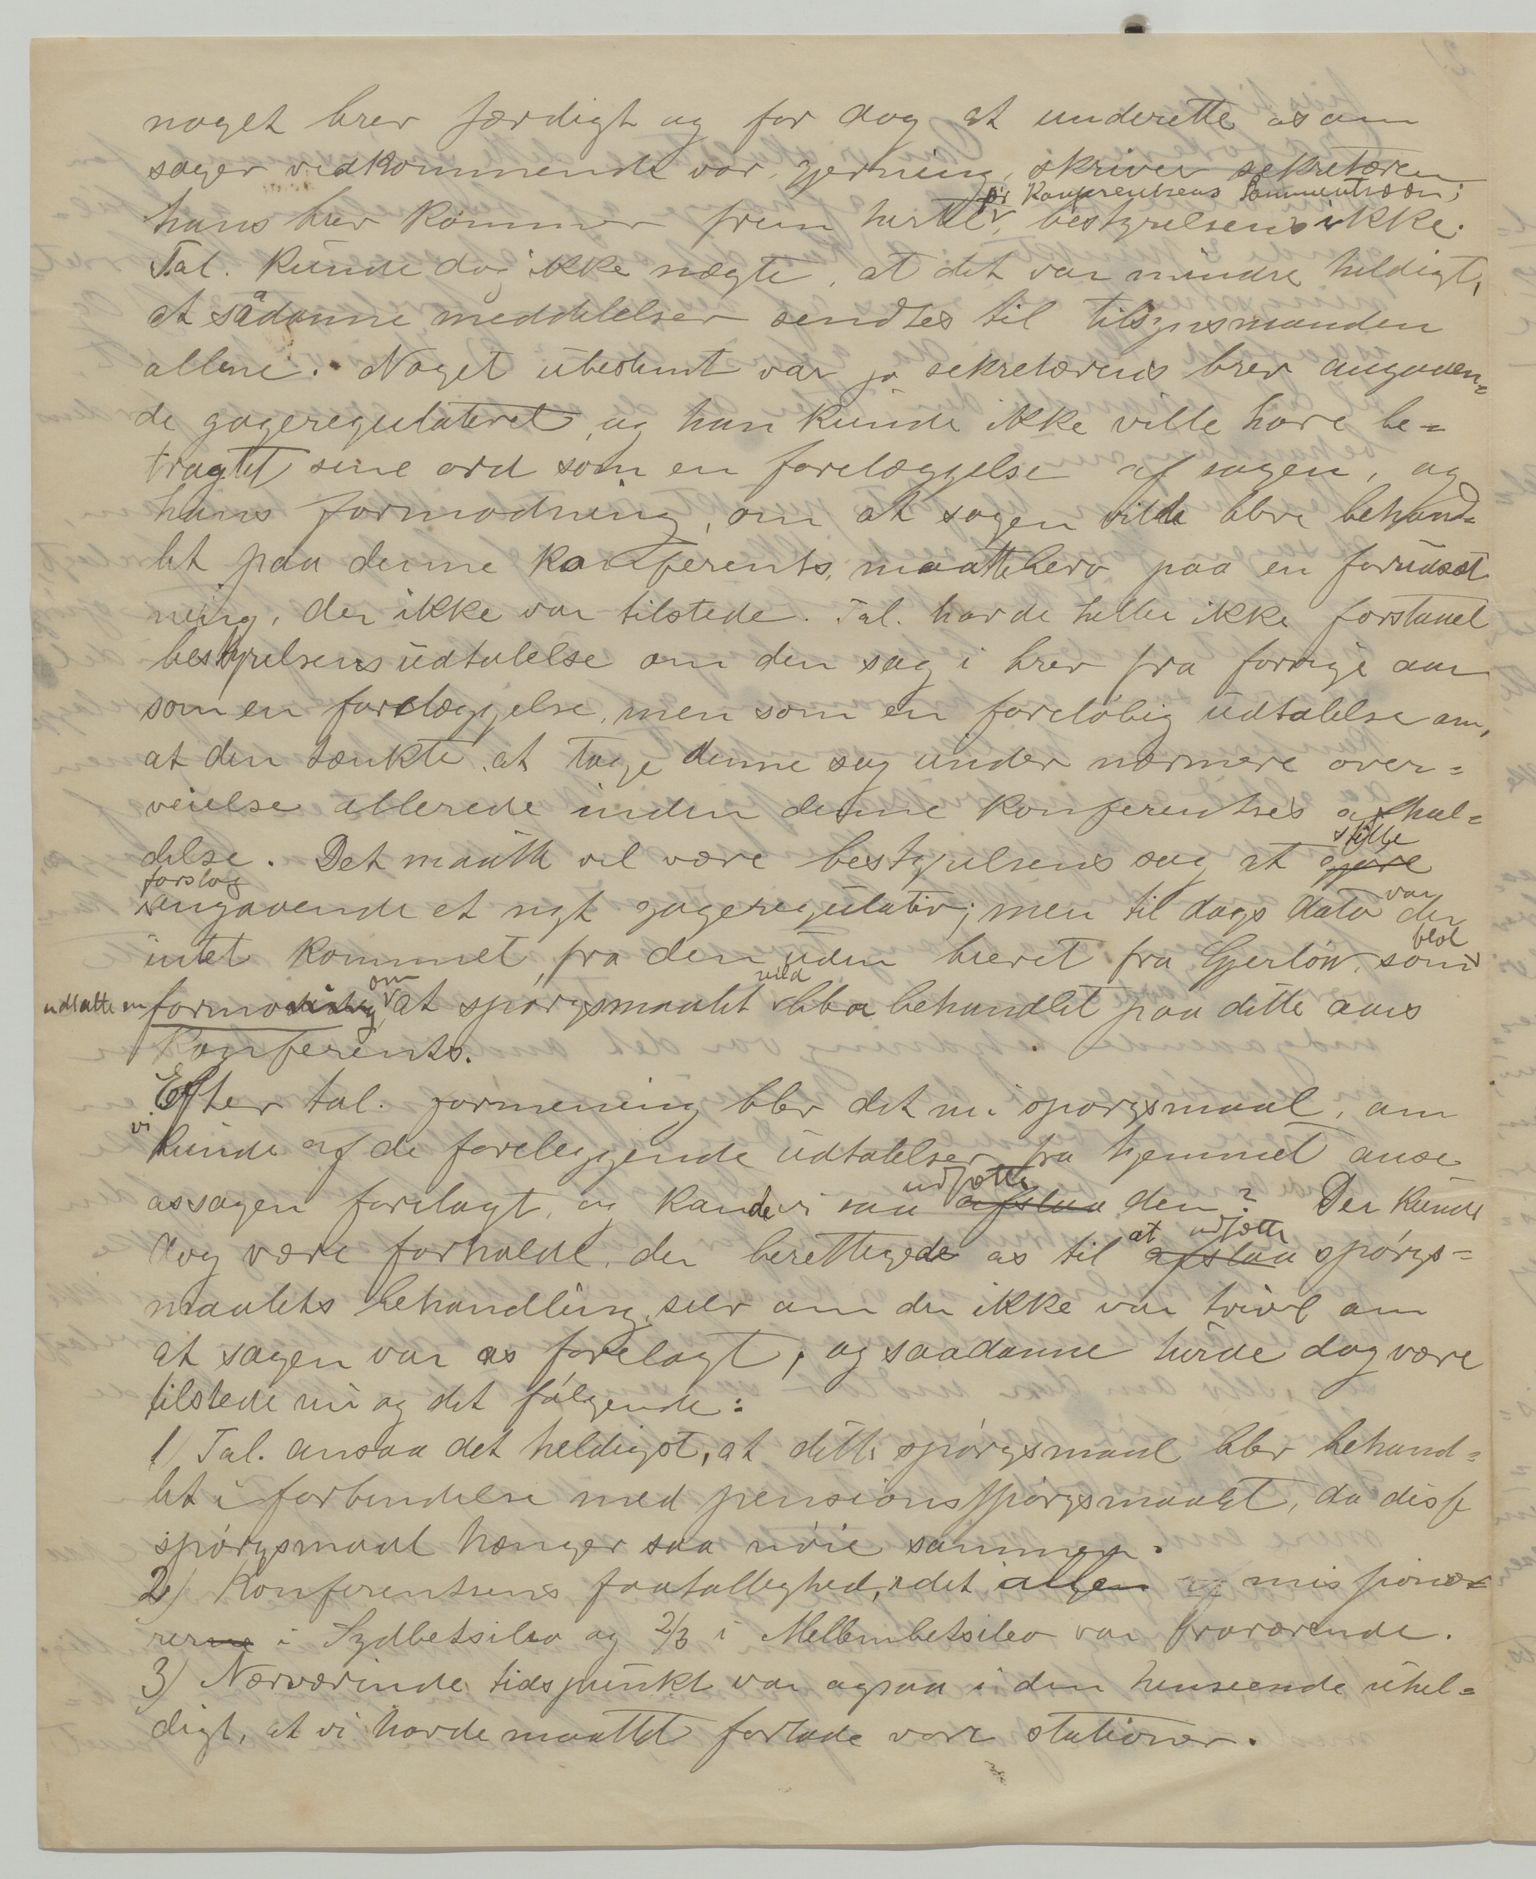 noget brev færdigt og for dog at underette os om
sager vedkommende vor gjerning, skriver sekretæren
før Konferentsens Sammentræden;
hans brev kommer frem hertil, bestyrelsens ikke.
Tal. kunde dog ikke nægte, at det var mindre heldigt,
at sådanne meddelelser sendtes til tilsynsmanden
allene. Noget ubestemt var jo sekretærens brev angaaen=
de gageregulativet, og han kunde ikke ville have be=
tragtet sine ord som en forelæggelse af sagen, og
hans formodning, om at sagen vilde blive behand=
let paa denne konferents, maatte bero paa en forudsæt
ning, der ikke var tilstede. Tal. havde heller ikke forstaaet
bestyrelsens udtalelse om den sag i brev fra forrige aar
som en forelæggelse, men som en foreløbig udtalelse om,
at den tænkte at tage denne sag under nærmere over=
veielse allerede inden denne konferentses afhol=
delse. Det maatte vel være bestyrelsens sag at gjøre stille
forslag
angaaende et nyt gageregulativ; men til dags dato var der
intet kommet fra den uden brevet fra Gjerløw, som blot
udtalte en formodning om at spørgsmaalet vild blive behandlet paa dette aars
Konferents.
Efter tal. formening blev det nu spørgsmaal, om
vi kunde af de foreliggende udtalelser fra hjemmet anse
os sagen forelagt, og kande vi saa afslaa udsætte den? Der kunde
dog være forhold, der berettigede os til at afslaa udsætte spørgs=
maalets behandling, selv om der ikke var tvivl om
at sagen var os forelagt, og saadanne turde dog være
tilstede nu og det følgende:
1) Tal. ansaa det heldigst, at dette spørgsmaal blev behand=
let i forbindelse med pensionsspørgsmaalet, da disse
spørgsmaal hænger saa nøie sammen.
2) Konferentsens faatallighed, idet alle missionæ=
rerne i Sydbetsileo og 2/3 i Mellembetsileo var fraværende.
3) Nærværende tidspunkt var ogsaa i den henseende uhel=
digt, at vi havde maattet forlade vore stationer.